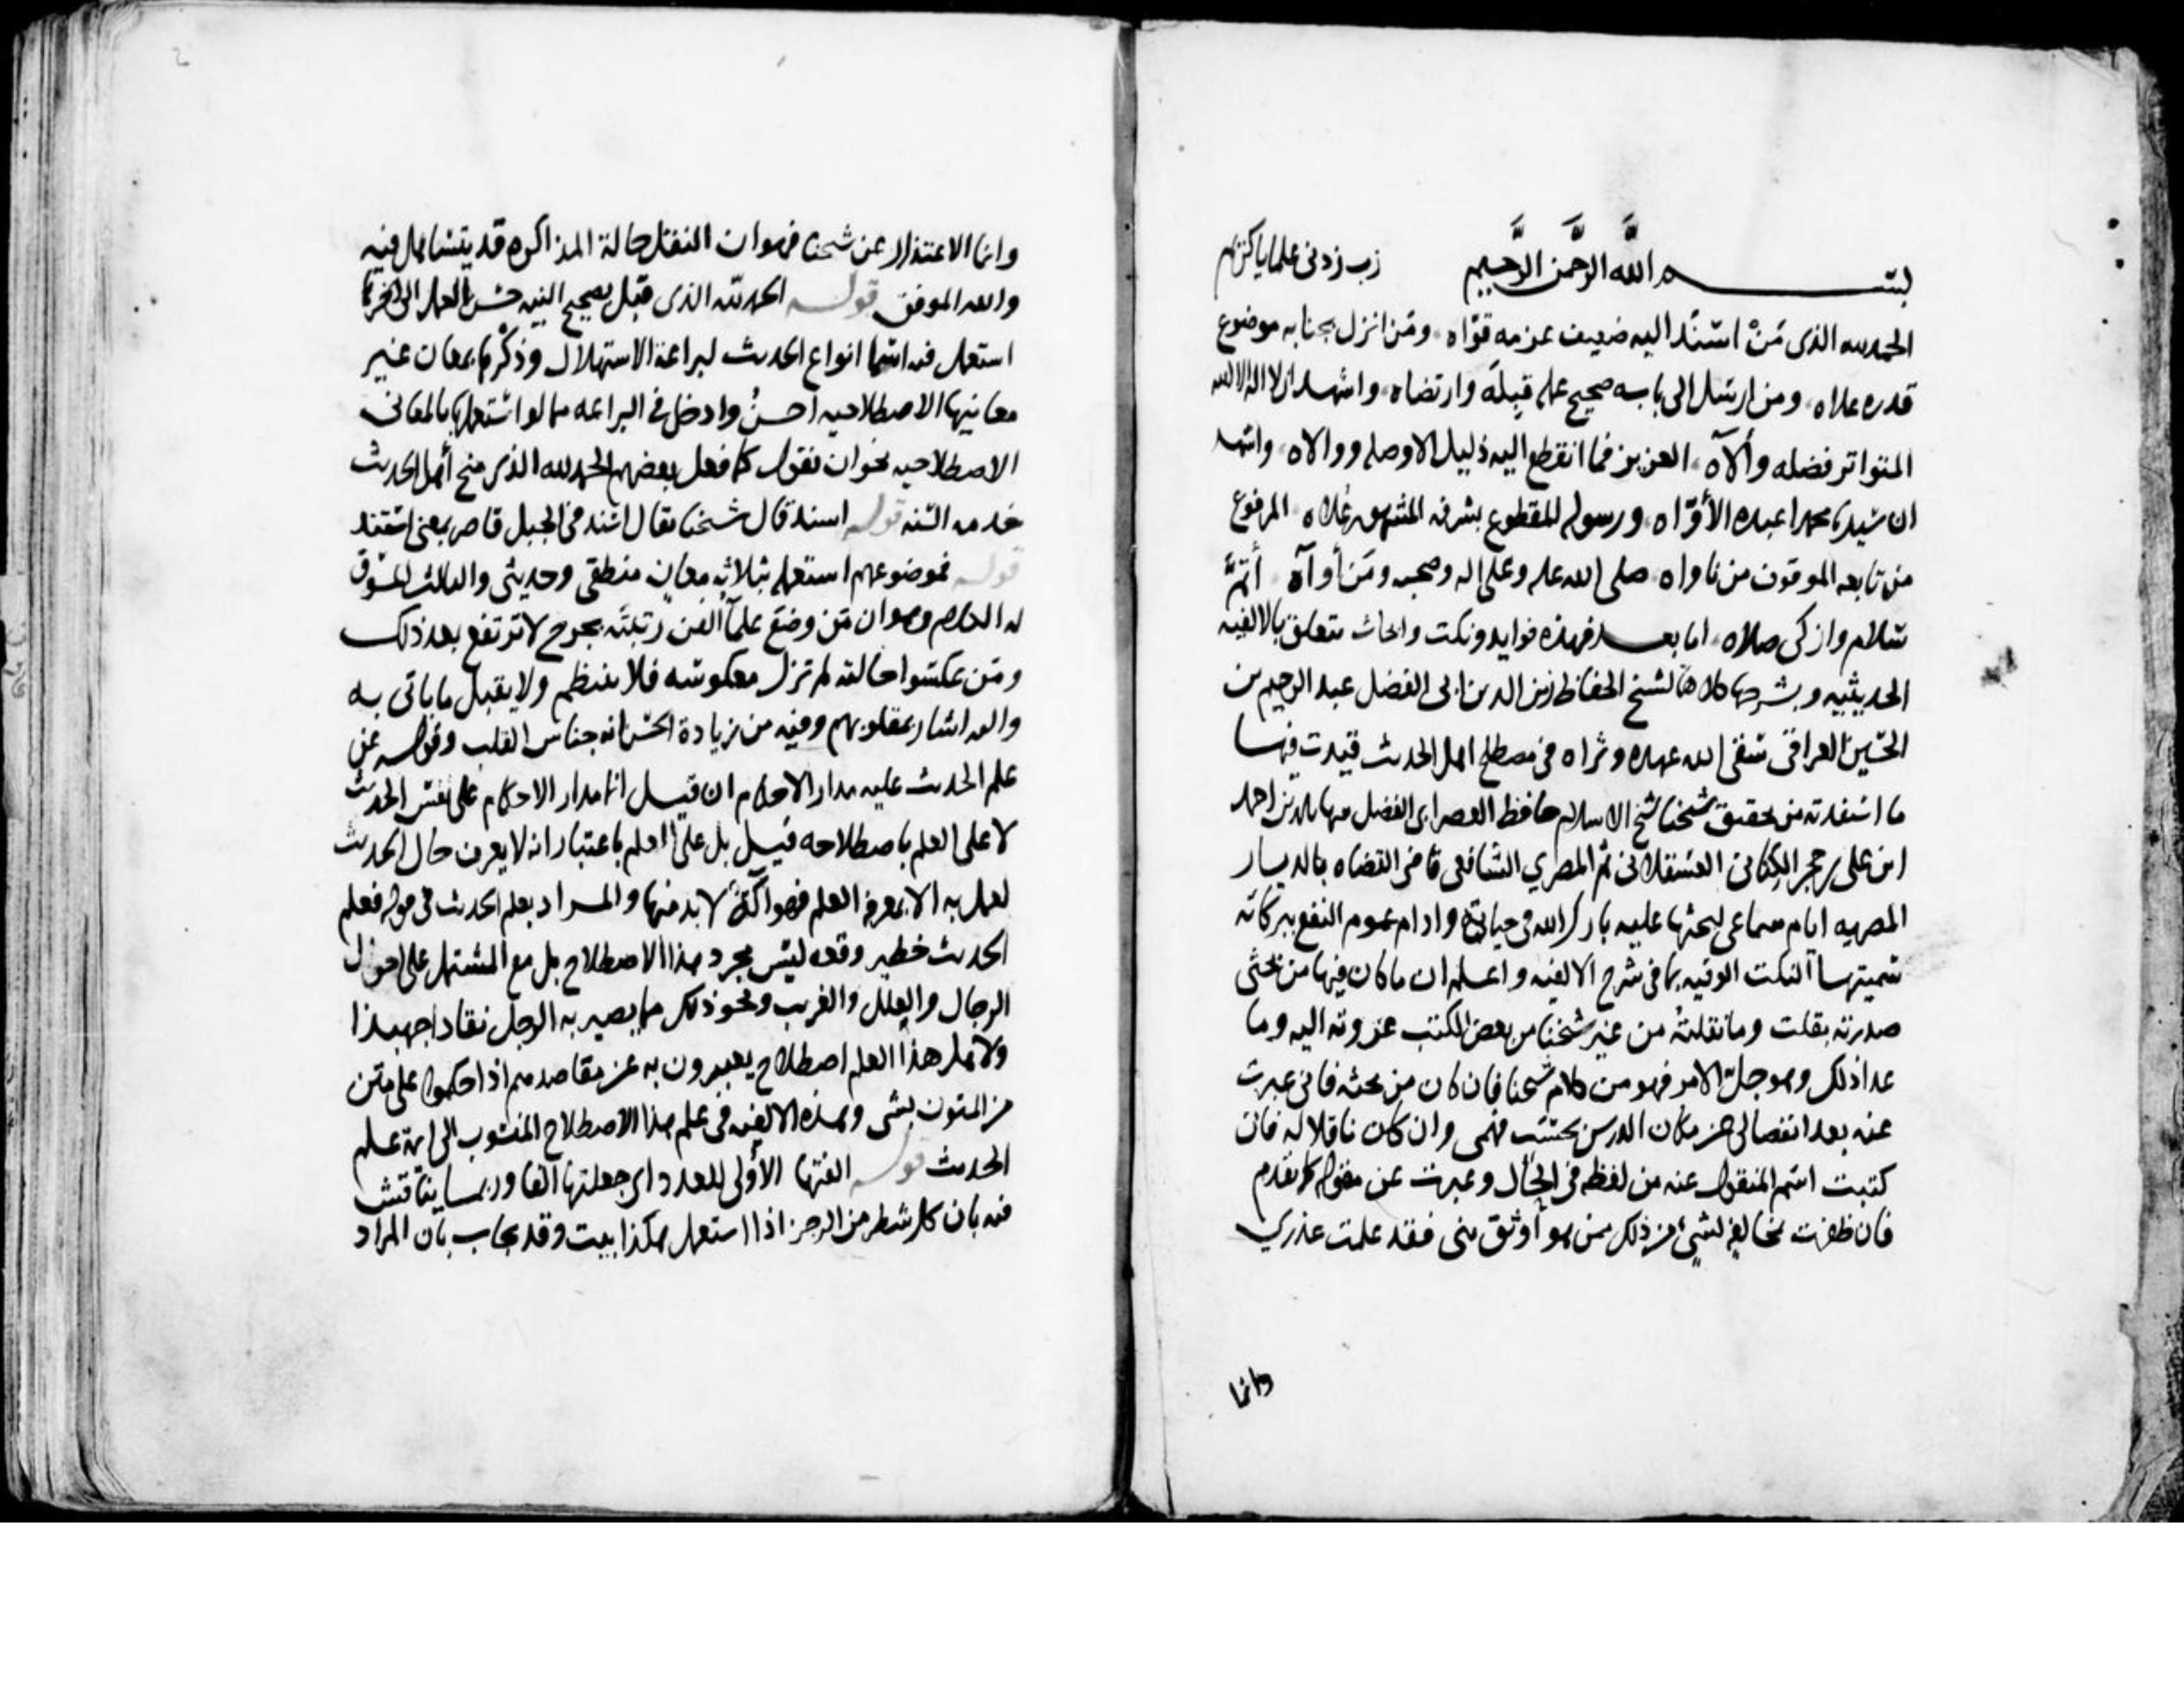 بسم الله الرحمن الرحيم رب زدني علما يا كريم
الحمد لله الذى مَنْ اسْنَد اليه ضعيف عزمه قوّاه ومَن انزل بجنابه موضوع
قدره علاه ومن ارسل الى بابه صحيح علم قبِلَه وارتضاه واشهد ان لا اله الا الله
المتواتر فضله وألآه العزيز فما انقطع اليه ذليل الا وصله ووالاه واشهد
ان سيدنا محمدا عبده الأوّاه ورسوله المقطوع بشرفه المشهور عُلاه المرفوع
من تابعه الموقوف من ناواه صلى الله عليه وعلى اله وصحبه ومَن أوآه أتمَّ
سلام وازكى صلاه اما بعد فهذه فوايد ونكت وابحاث تتعلق بالالفيه
الحديثيه وبشرحها كلاهما لشيخ الحفاظ زين الدين ابى الفضل عبد الرحيم بن
الحسين العراقى سقى الله عهده وثراه فى مصطلح اهل الحديث قيدت فيها
ما استفدته من تحقيق شيخنا شيخ الاسلام حافظ العصر ابى الفضل شهاب الدين احمد
ابن على بن حجر الكنانى العسقلانى ثم المصري الشافعى قاضى القضاه بالديار
المصريه ايام سماعى لبحثها عليه بارك الله فى حياته وادام عموم النفع ببركاته
سميتها النكت الوفيه بما فى شرح الالفيه واعلم ان ما كان فيها من بحثى
صدرته بقلت وما نقلتهُ من غير شيخنا من بعض الكتب عزوته اليه وما
عدا ذلك وهو جلّ الامر فهو من كلام شيخنا فان كان من بحثه فانى عبرت
عنه بعد انفصالى عن مكان الدرس بحسب فهمى وان كان ناقلا له فانى
كتبت اسم المنقول عنه من لفظه فى الحال وعبرت عن مقوله كما تقدم
فان ظفرت بمخالفة لشىء من ذلك ممن هو أوثق منى فقد علمت عذري
وانما
وانما الاعتذار عن شيخنا فهو ان النقل حالة المذاكره قد يتساهل فيه
والله الموفق قوله الحمد لله الذى قبل بصحيح النيه حسن العمل الى اخره انما
استعمل فيه اسما انواع الحديث لبراعة الاستهلال وذكْرها بمعان غير
معانيها الاصطلاحيه احسنُ وادخل فى البراعه مما لو استعملها بالمعانى
الاصطلاحيه نحو ان نقول كما فعل بعضهم الحمد لله الذى منح أهل الحديث
خدمه السنه قوله اسند قال شيخنا يقال اسند فى الجبل قاصر بمعنى استند
قوله فموضوعهم استعمله بثلاثه معان منطقى وحديثى والثالث المسوق
له الكلام وهو ان من وضع علماَ الفن رتبتَه بجرح لا ترتفع بعد ذلك
ومن عكسوا حالته لم تزل معكوسه فلا ينتظم ولا يقبل ما ياتى به
والله اشار بمقلوبهم وفيه من زيادة الحسن انه جناس القلب وقوله عن
علم الحديث عليه مدار الاحكام ان قيل انما مدار الاحكام على نفس الحديث
لا على العلم باصطلاحه قيل بل على العلم باعتبار انه لا يعرف حال الحديث
لعمل به الا بمعرفة العلم فهو آلةٌ لا بد منها والمراد بعلم الحديث فى قوله فعلم
الحديث خطير وقعه ليس مجرد هذا الاصطلاح بل مع المشتمل على احوال
الرجال والعلل والغريب ونحو ذلك مما يصير به الرجل نقادا جهبذا
ولاهل هذا العلم اصطلاح يعبرون به عن مقاصدهم اذا حكموا على متن
من المتون بشى وهذه الالفيه فى علم هذا الاصطلاح المنسوب الى ائمة علم
الحديث قوله الفتها الأولى للعدد اى جعلتها الفا وربما يناقش
فيه بان كل شطر من الرجز اذا استعمل هكذا بيت وقد يجاب بان المراد